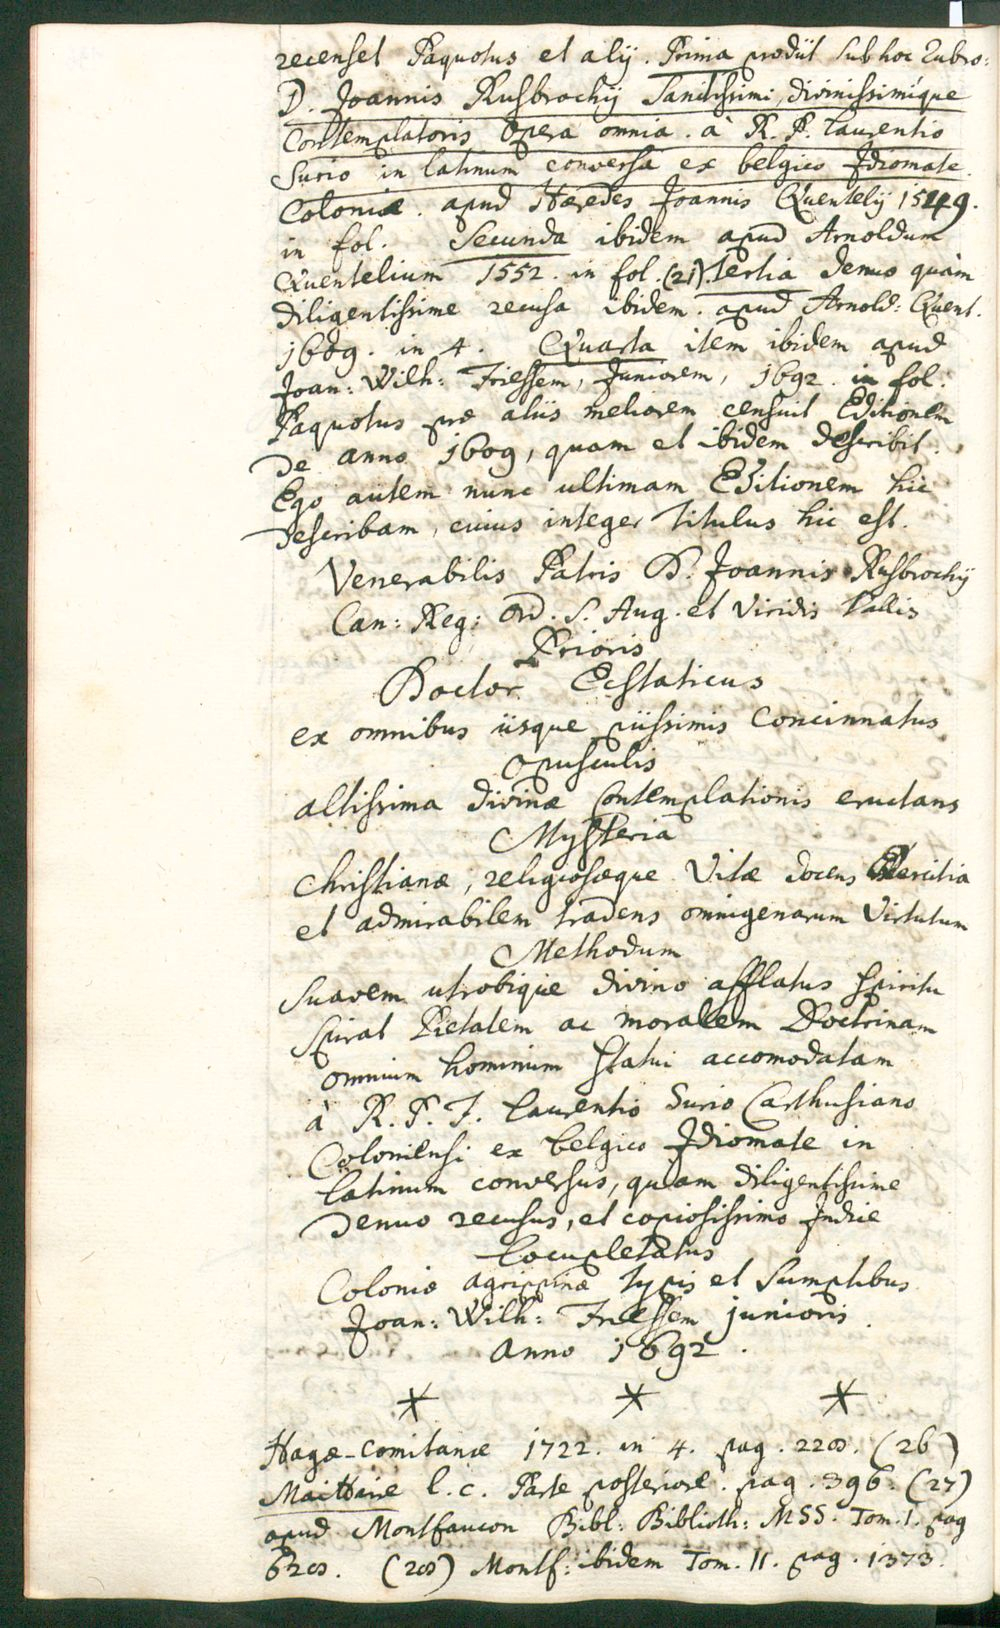 recenset Paquotus et alij. Prima prodiit sub hoc Rubro:
D. Joannis Rusbrochij Sanctissimi, divinissimíque
Contemplatoris Opera omnia. à R. P. Laurentio
Surio in latinum conversa ex belgico Idiomate.
Coloniæ. apud Hæredes Joannis Quentelij 1549.
in fol. Secunda ibidem apud Arnoldum
Quentelium 1552. in fol. (21). tertia denuo quàm
diligentissime recusa ibidem. apud Arnold: Quent.
1609. in 4. Quarta item ibidem apud
Joan: Wilh: Friessem, Juniorem, 1692. in fol.
Paquotus præ aliis meliorem censuit Editionem
de anno 1609, quam et ibidem describit.
Ego autem nunc ultimam Editionem hic
describam, cuius integer Titulus hic est.
Venerabilis Patris D. Joannis Rusbrochij
Can: Reg: Ord. S. Aug. et Viridis Vallis
Prioris
Doctor Ecstaticus
ex omnibus iisque piissimis concinnatus
opusculis
altissima divinæ Contemplationis eructans
Mysteria
Christianæ, religiosæque Vitæ docens Exercitia
et admirabilem tradens omnigenarum Virtutum
Methodum
Suavem utrobique divino afflatus Spiritu
Spirat Pietatem ac moralem Doctrinam
omnium hominum statui accomodatam
à R. P. F. Laurentio Surio Carthusiano
Coloniensi ex belgico Idiomate in
latinum conversus, quàm diligentissime
denuo recusus, et copiosissimo Indice
locupletatus
Coloniæ agrippinæ typis et Sumptibus
Joan: Wilh: Friessem junioris.
Anno 1692.
* * *
Hagæ-Comitanæ 1722. in 4. pag. 228. (26)
Maittaire l. c. Parte posteriore. pag. 396. (27)
apud Montfaucon Bibl: Biblioth: MSS. Tom. I. pag
628. (28) Montf: ibidem Tom. II. pag. 1373.